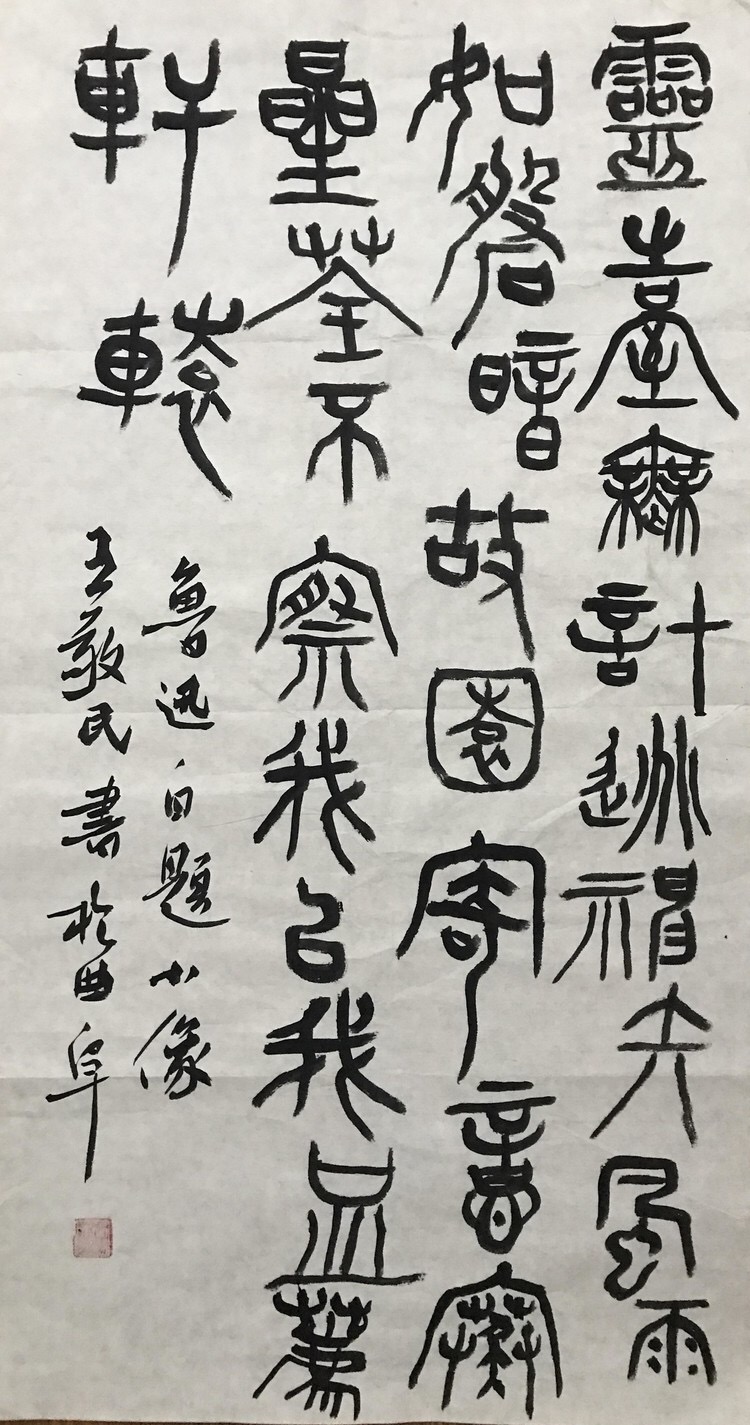 靈臺無計逃神矢風雨
如磐暗故園寄意寒
星荃不察我以我血薦
軒轅
魯迅自題小像
王敬民書於曲阜